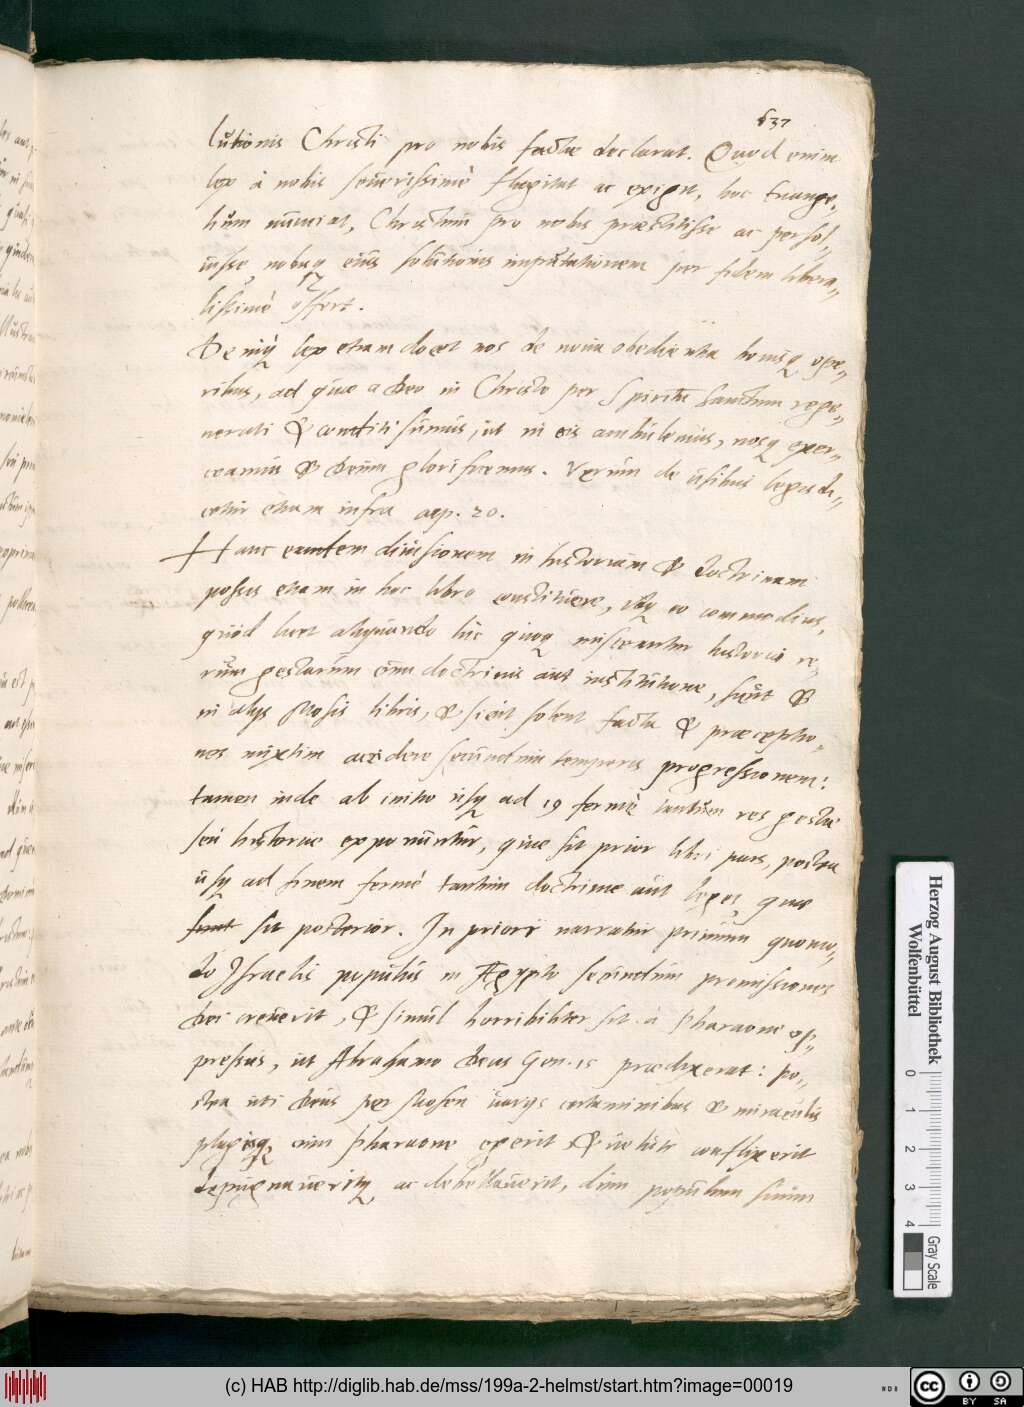 537
lutionis Christi pro nobis factae declarat. Quod enim
lex à nobis seuerissimè flagitat ac exigit, hoc Euange„
lium nunciat, Christum pro nobis praestitisse ac persol„
uisse, nobisq eius solutionis imputationem per fidem libera„
lissimè offert.
Deniq lex etiam docet nos de noua obedientia bonisq ope„
ribus, ad quae a Deo in Christo per Spiritū Sanctum rege„
nerati & conditi sumus, ut in eis ambulemus, nosq exer„
ceamus & Deum glorificemus. Verùm de usibus legis di„
cetur etiam infra cap. 20.
Hanc eandem diuisionem in historiam & doctrinam
possis etiam in hoc libro constituere, idq eo commodius,
quòd licet aliquando hic quoq misceantur historia re„
rum gestarum cum doctrinis aut institutione, sicut &
in alijs Mosis libris, & sicut solent facta & praeceptio„
nes mixtim accidere secundum temporis progressionem:
tamen inde ab initio usq ad 19 fermè tantùm res gestae
seu historiae exponuntur, quae sit prior libri pars, postea
usq ad finem fermè tantùm doctrinae aut leges, quae
sunt sit posterior. In priori narratur primùm quomo„
do Israelis populus in Aegypto secundùm promissiones
Dei creuerit, & simul horribiliter sit à Pharaone op„
pressus, ut Abrahamo Deus Gen. 15 praedixerat: po„
stea uti Deus per Mosen uarijs certaminibus & miraculis
plagisq cum Pharaone egerit & uelut conflixerit
depugnaueritq ac debellauerit, dum populum suum
Herzog August Bibliothek
Wolfenbüttel
0 1 2 3 4
Gray Scale
(c) HAB http://diglib.hab.de/mss/199a-2-helmst/start.htm?image=00019
cc BY SA